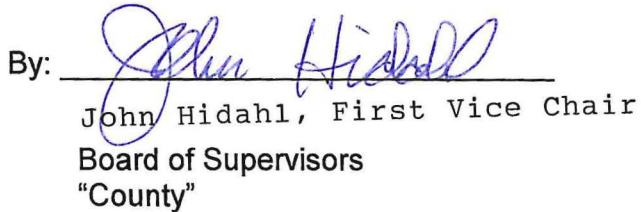 By: John Hidahl
John Hidahl, First Vice Chair
Board of Supervisors
“County”